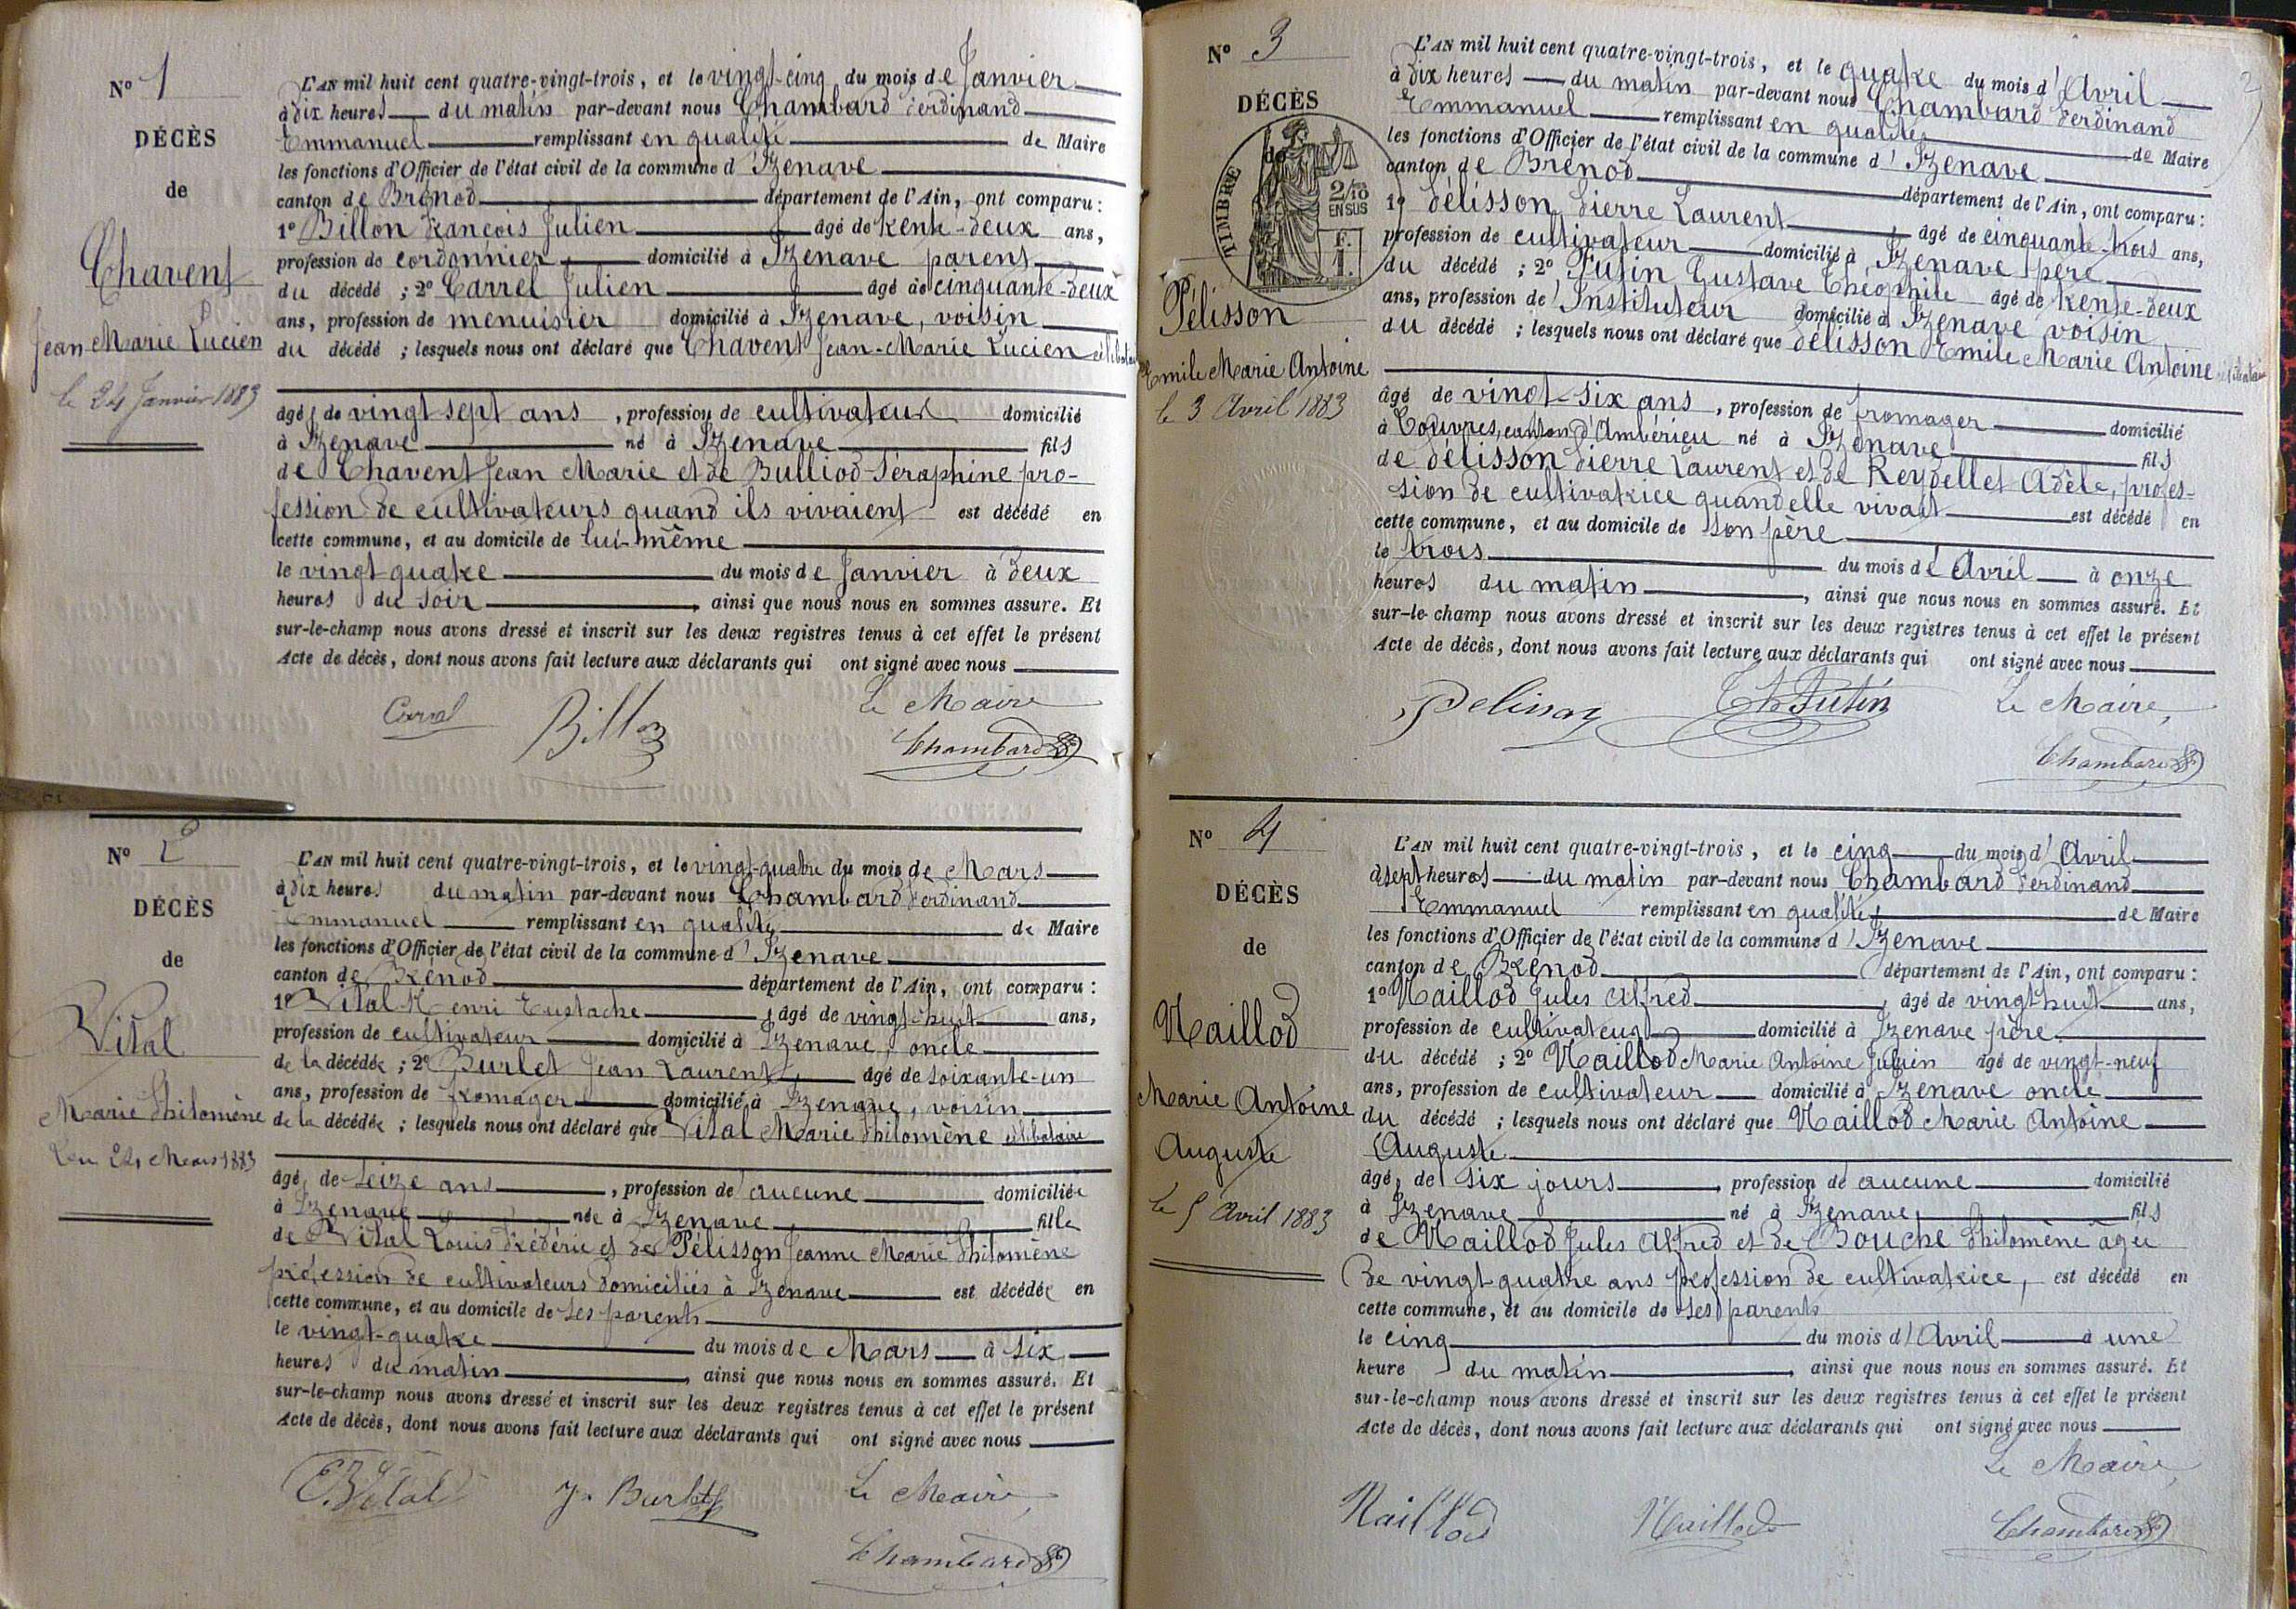 N° 1
DÉCÈS
de
Chavent
Jean Marie Lucien
le 24 Janvier 1883
L'AN mil huit cent quatre-vingt-trois, et le vingt-cinq du mois de Janvier
à dix heures du matin par-devant nous Chambard Ferdinand
Emmanuel remplissant en qualité de Maire
les fonctions d'Officier de l'état civil de la commune d'Izenave
canton de Brénod département de l'Ain, ont comparu :
1° Billon François Julien âgé de trente-deux ans,
profession de cordonnier domicilié à Izenave parent
du décédé ; 2° Carrel Julien âgé de cinquante-deux
ans, profession de menuisier domicilié à Izenave, voisin
du décédé ; lesquels nous ont déclaré que Chavent Jean-Marie Lucien célibataire
âgé de vingt sept ans, profession de cultivateur domicilié
à Izenave né à Izenave fils
de Chavent Jean Marie et de Bulliod Séraphine pro-
fession de cultivateurs quand ils vivaient est décédé en
cette commune, et au domicile de lui-même
le vingt quatre du mois de Janvier à deux
heures du soir, ainsi que nous nous en sommes assuré. Et
sur-le-champ nous avons dressé et inscrit sur les deux registres tenus à cet effet le présent
Acte de décès, dont nous avons fait lecture aux déclarants qui ont signé avec nous
Le Maire
Carrel Billon Chambard
N° 2
DÉCÈS
de
Vital
Marie Philomène
Le 24 Mars 1883
L'AN mil huit cent quatre-vingt-trois, et le vingt-quatre du mois de Mars
à dix heures du matin par-devant nous Chambard Ferdinand
Emmanuel remplissant en qualité de Maire
les fonctions d'Officier de l'état civil de la commune d'Izenave
canton de Brénod département de l'Ain, ont comparu :
1° Vital Henri Eustache, âgé de vingt-huit ans,
profession de cultivateur domicilié à Izenave, oncle
de la décédée ; 2° Burlet Jean Laurent, âgé de soixante-un
ans, profession de fromager domicilié à Izenave, voisin
de la décédée ; lesquels nous ont déclaré que Vital Marie Philomène célibataire
âgé de seize ans, profession de aucune domiciliée
à Izenave née à Izenave fille
de Vital Louis Frédéric et de Pélisson Jeanne Marie Philomène
profession de cultivateurs domiciliés à Izenave est décédée en
cette commune, et au domicile de ses parents
le vingt-quatre du mois de Mars à six
heures du matin, ainsi que nous nous en sommes assuré. Et
sur-le-champ nous avons dressé et inscrit sur les deux registres tenus à cet effet le présent
Acte de décès, dont nous avons fait lecture aux déclarants qui ont signé avec nous
Vital J. Burlet Le Maire,
Chambard
N° 3
DÉCÈS
de
TIMBRE
2/10
EN SUS
F.
1.
Pélisson
Emile Marie Antoine
le 3 Avril 1883
L'AN mil huit cent quatre-vingt-trois, et le quatre du mois d'Avril
à dix heures du matin par-devant nous Chambard Ferdinand
Emmanuel remplissant en qualité de Maire
les fonctions d'Officier de l'état civil de la commune d'Izenave
canton de Brénod département de l'Ain, ont comparu :
1° Pélisson Pierre Laurent âgé de cinquante-trois ans,
profession de cultivateur domicilié à Izenave père
du décédé ; 2° Putin Gustave Théophile âgé de trente-deux
ans, profession de Instituteur domicilié à Izenave voisin
du décédé ; lesquels nous ont déclaré que Pélisson Emile Marie Antoine célibataire
âgé de vingt-six ans, profession de fromager domicilié
à Douvres, canton d'Ambérieu né à Izenave fils
de Pélisson Pierre Laurent et de Reydellet Adèle, profes-
sion de cultivatrice quand elle vivait est décédé en
cette commune, et au domicile de son père
le trois du mois d'Avril à onze
heures du matin, ainsi que nous nous en sommes assuré. Et
sur-le-champ nous avons dressé et inscrit sur les deux registres tenus à cet effet le présent
Acte de décès, dont nous avons fait lecture aux déclarants qui ont signé avec nous
Pelisson Th Putin Le Maire,
Chambard
N° 4
DÉCÈS
de
Maillod
Marie Antoine
Auguste
Le 5 Avril 1883
L'AN mil huit cent quatre-vingt-trois, et le cinq du mois d'Avril
à sept heures du matin par-devant nous Chambard Ferdinand
Emmanuel remplissant en qualité de Maire
les fonctions d'Officier de l'état civil de la commune d'Izenave
canton de Brénod département de l'Ain, ont comparu :
1° Maillod Jules Alfred, âgé de vingt huit ans,
profession de cultivateur domicilié à Izenave père
du décédé ; 2° Maillod Marie Antoine Julien âgé de vingt-neuf
ans, profession de cultivateur domicilié à Izenave oncle
du décédé ; lesquels nous ont déclaré que Maillod Marie Antoine
Auguste
âgé de six jours, profession de aucune domicilié
à Izenave né à Izenave fils
de Maillod Jules Alfred et de Bouche Philomène âgée
de vingt-quatre ans profession de cultivatrice, est décédé en
cette commune, et au domicile de ses parents
le cinq du mois d'Avril à une
heure du matin, ainsi que nous nous en sommes assuré. Et
sur-le-champ nous avons dressé et inscrit sur les deux registres tenus à cet effet le présent
Acte de décès, dont nous avons fait lecture aux déclarants qui ont signé avec nous
Le Maire,
Maillod Maillod Chambard